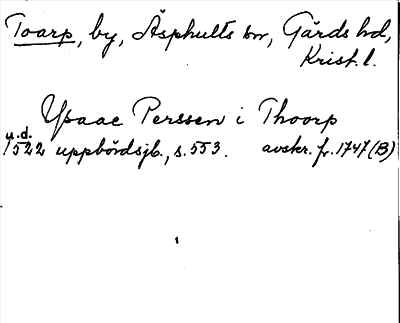 Toarp, by, Äsphults sn, Gärds hd,
Krist. l.
Ysaac Perssen i Thoorp
u.d.
1522 uppbördsjb., s. 553. avskr. fr. 1747 (B)